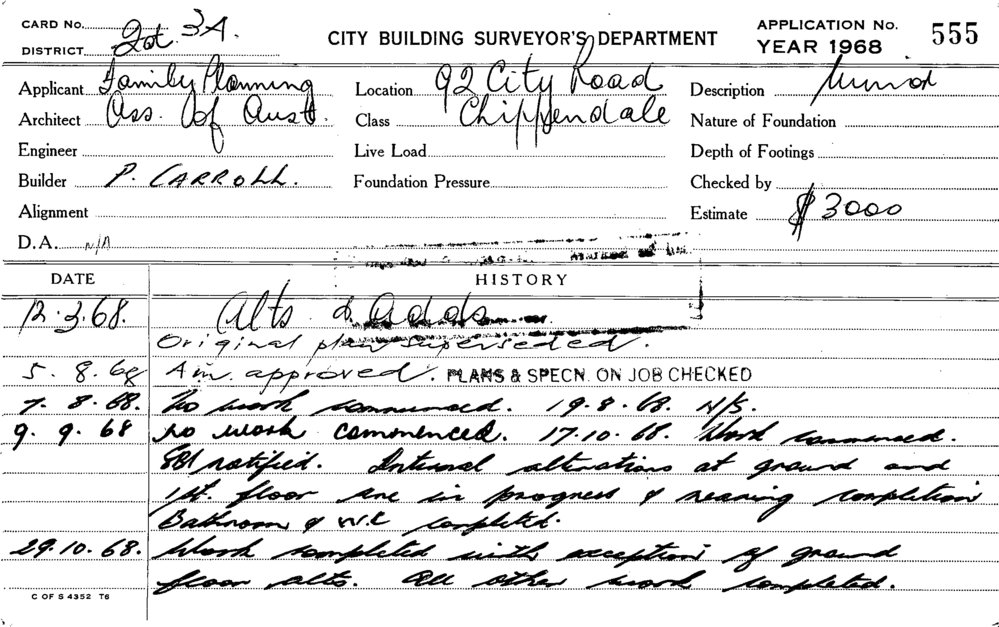 CARD No. APPLICATION No. 555
DISTRICT 3A. CITY BUILDING SURVEYOR'S DEPARTMENT YEAR 1968
Applicant Family Planning Location 92 City Road Description Minor
Architect Ass. of Aust. Class Chippendale Nature of Foundation
Engineer Live Load Depth of Footings
Builder P. CARROLL. Foundation Pressure Checked by
Alignment Estimate $3000
D.A. N/A
DATE HISTORY
12.3.68. Alts & adds
Original plan superseded.
5.8.68 Am. approved. PLANS & SPECN. ON JOB CHECKED
7.8.68. No work commenced. 19.8.68. N/S.
9.9.68 no work commenced. 17.10.68. Work commenced.
notified. Internal alterations at ground and
1st. floor are in progress & nearing completion
Bathroom & W.C completed.
29.10.68. Work completed with exception of ground
floor alts. All other work completed.
C OF S 4352 T6